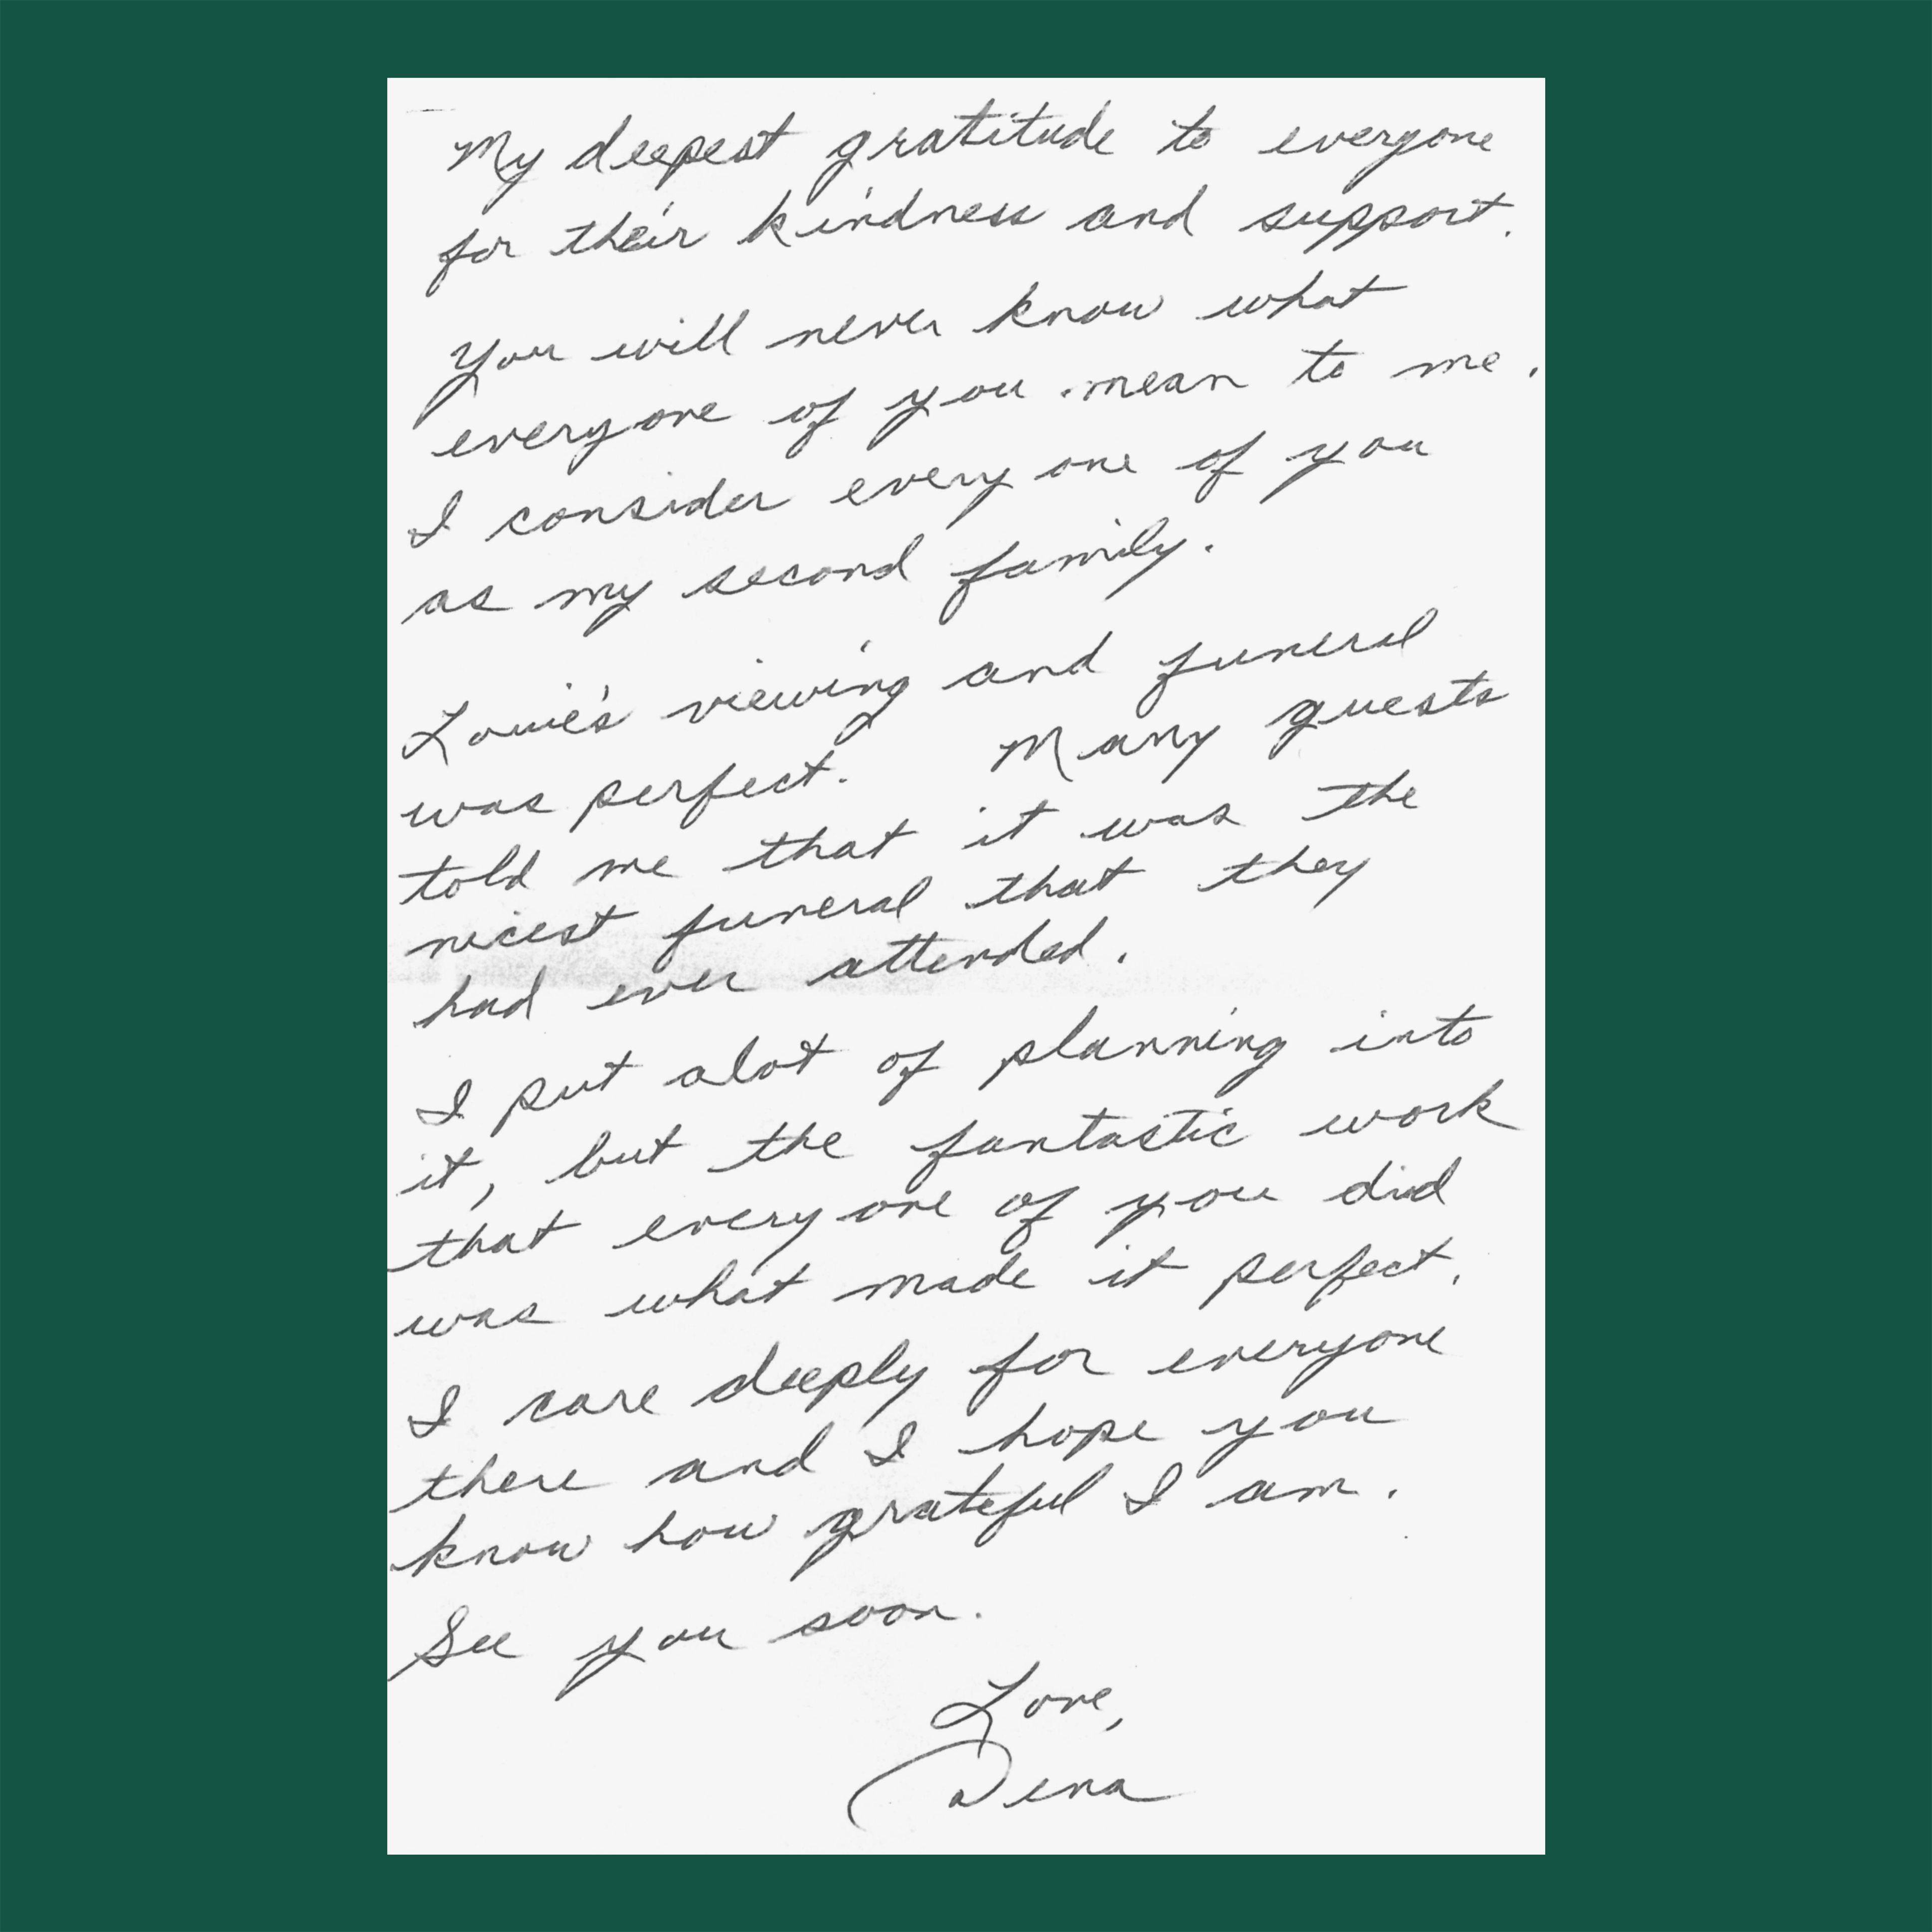 My deepest gratitude to everyone
for their kindness and support.
You will never know what
everyone of you mean to me.
I consider every one of you
as my second family.
Louie's viewing and funeral
was perfect. Many guests
told me that it was the
nicest funeral that they
had ever attended.
I put alot of planning into
it, but the fantastic work
that every one of you did
was what made it perfect.
I care deeply for everyone
there and I hope you
know how grateful I am.
See you soon.
Love,
Dena